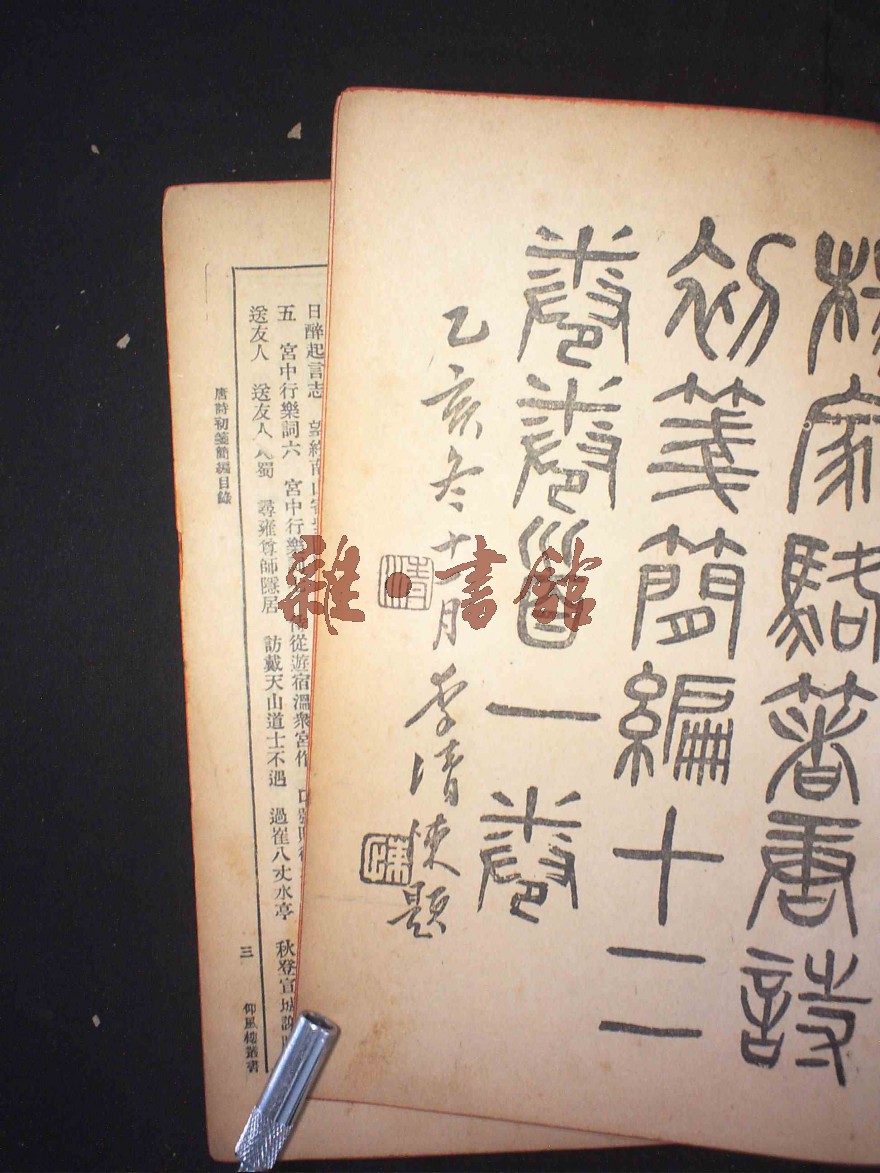 楊家駱著唐詩
初箋簡編十二
卷卷首一卷
乙亥冬十一月李清悚題
清
悚
雜·書館
日醉起言志 望終南山寄
五 宮中行樂詞六 宮中行樂 侍從遊宿溫泉宮作
送友人 送友人入蜀 尋雍尊師隱居 訪戴天山道士不遇 過崔八丈水亭 秋登宣城謝
唐詩初箋簡編目錄
三
仰風樓叢書